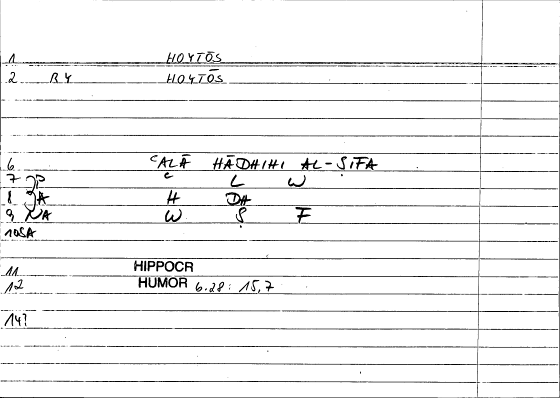 1 HOYTŌS
2 RY HOYTŌS
6 ʿALĀ HĀDHIHI AL-ṢIFA
7 JP ʿ L W
8 JA H DH
9 NA W Ṣ F
10 SA
11 HIPPOCR
12 HUMOR 6.28: 15,7
14?